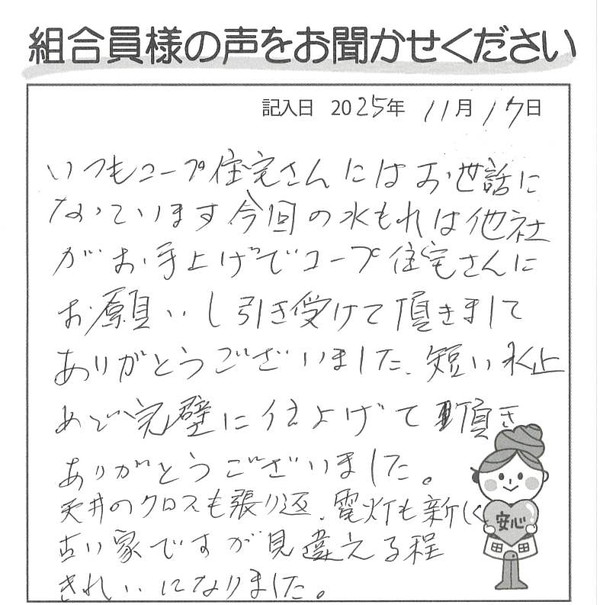 組合員様の声をお聞かせください
記入日 2025年 11月 17日
いつもコープ住宅さんにはお世話に
なっています今回の水もれは他社
がお手上げでコープ住宅さんに
お願いし引き受けて頂きまして
ありがとうございました、短い
めで完璧に仕上げて頂き
ありがとうございました。
天井のクロスも張り返、電灯も新しく
古い家ですが見違える程
きれいになりました。
安心